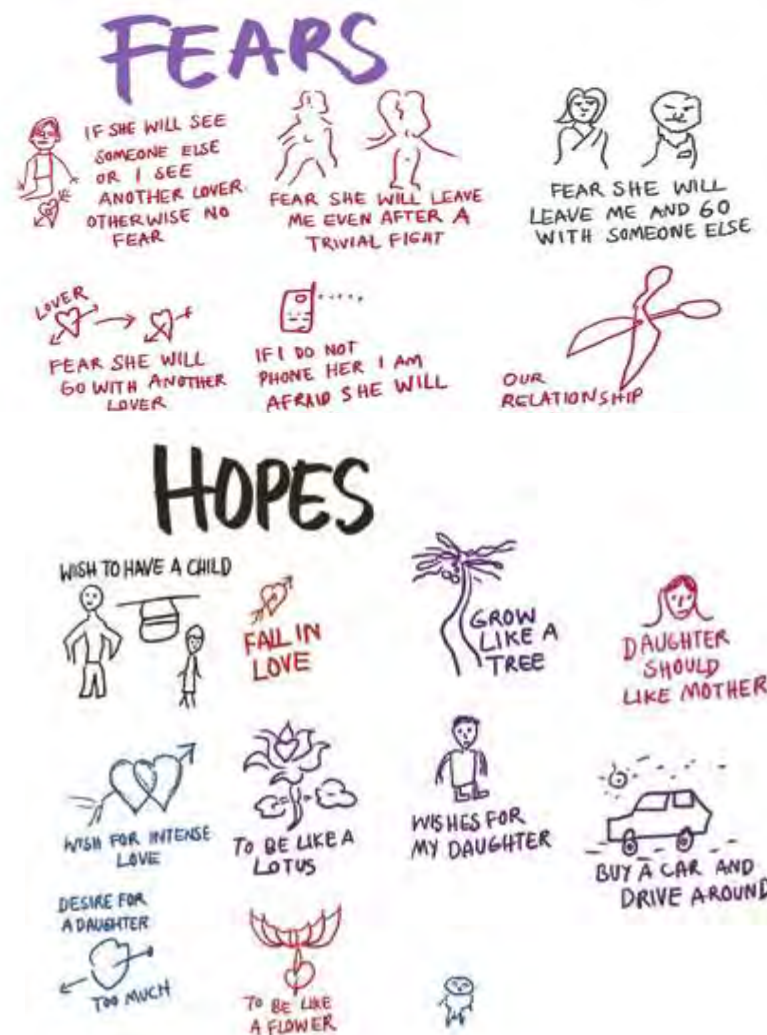 FEARS
IF SHE WILL SEE
SOMEONE ELSE
OR I SEE
ANOTHER LOVER.
OTHERWISE NO
FEAR
FEAR SHE WILL LEAVE
ME EVEN AFTER A
TRIVIAL FIGHT
FEAR SHE WILL
LEAVE ME AND GO
WITH SOMEONE ELSE
LOVER
FEAR SHE WILL
GO WITH ANOTHER
LOVER
IF I DO NOT
PHONE HER I AM
AFRAID SHE WILL
OUR
RELATIONSHIP
HOPES
WISH TO HAVE A CHILD
FALL IN
LOVE
GROW
LIKE A
TREE
DAUGHTER
SHOULD
LIKE MOTHER
WISH FOR INTENSE
LOVE
TO BE LIKE A
LOTUS
WISHES FOR
MY DAUGHTER
BUY A CAR AND
DRIVE AROUND
DESIRE FOR
A DAUGHTER
TOO MUCH
TO BE LIKE
A FLOWER